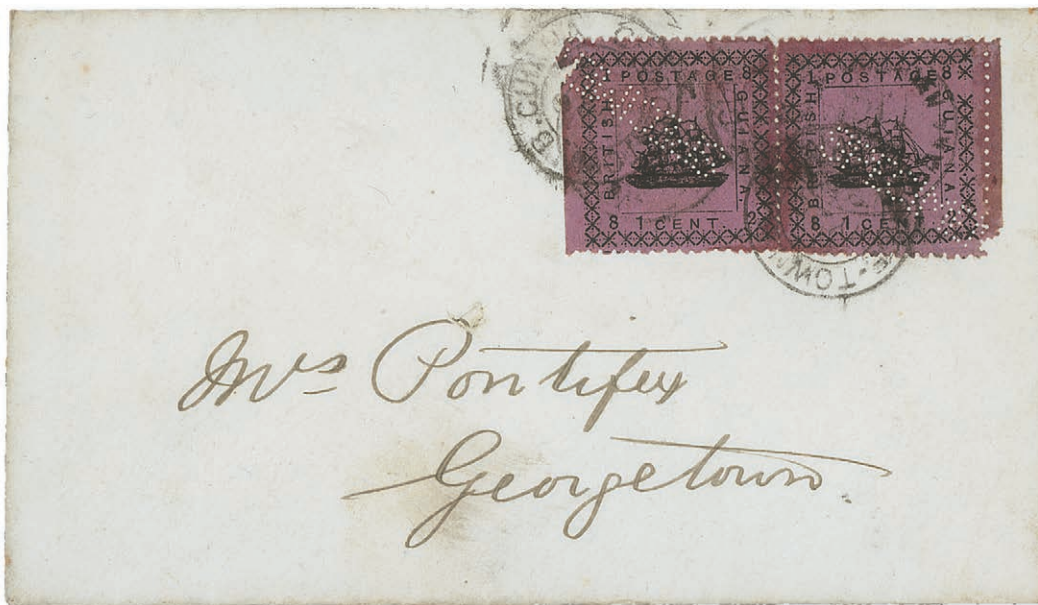 B. GUIANA
1 POSTAGE 8
BRITISH
GUIANA
8 1 CENT. 2
1 POSTAGE 8
BRITISH
GUIANA
8 1 CENT 2
E-TOWN
Mrs Pontifex
Georgetown.